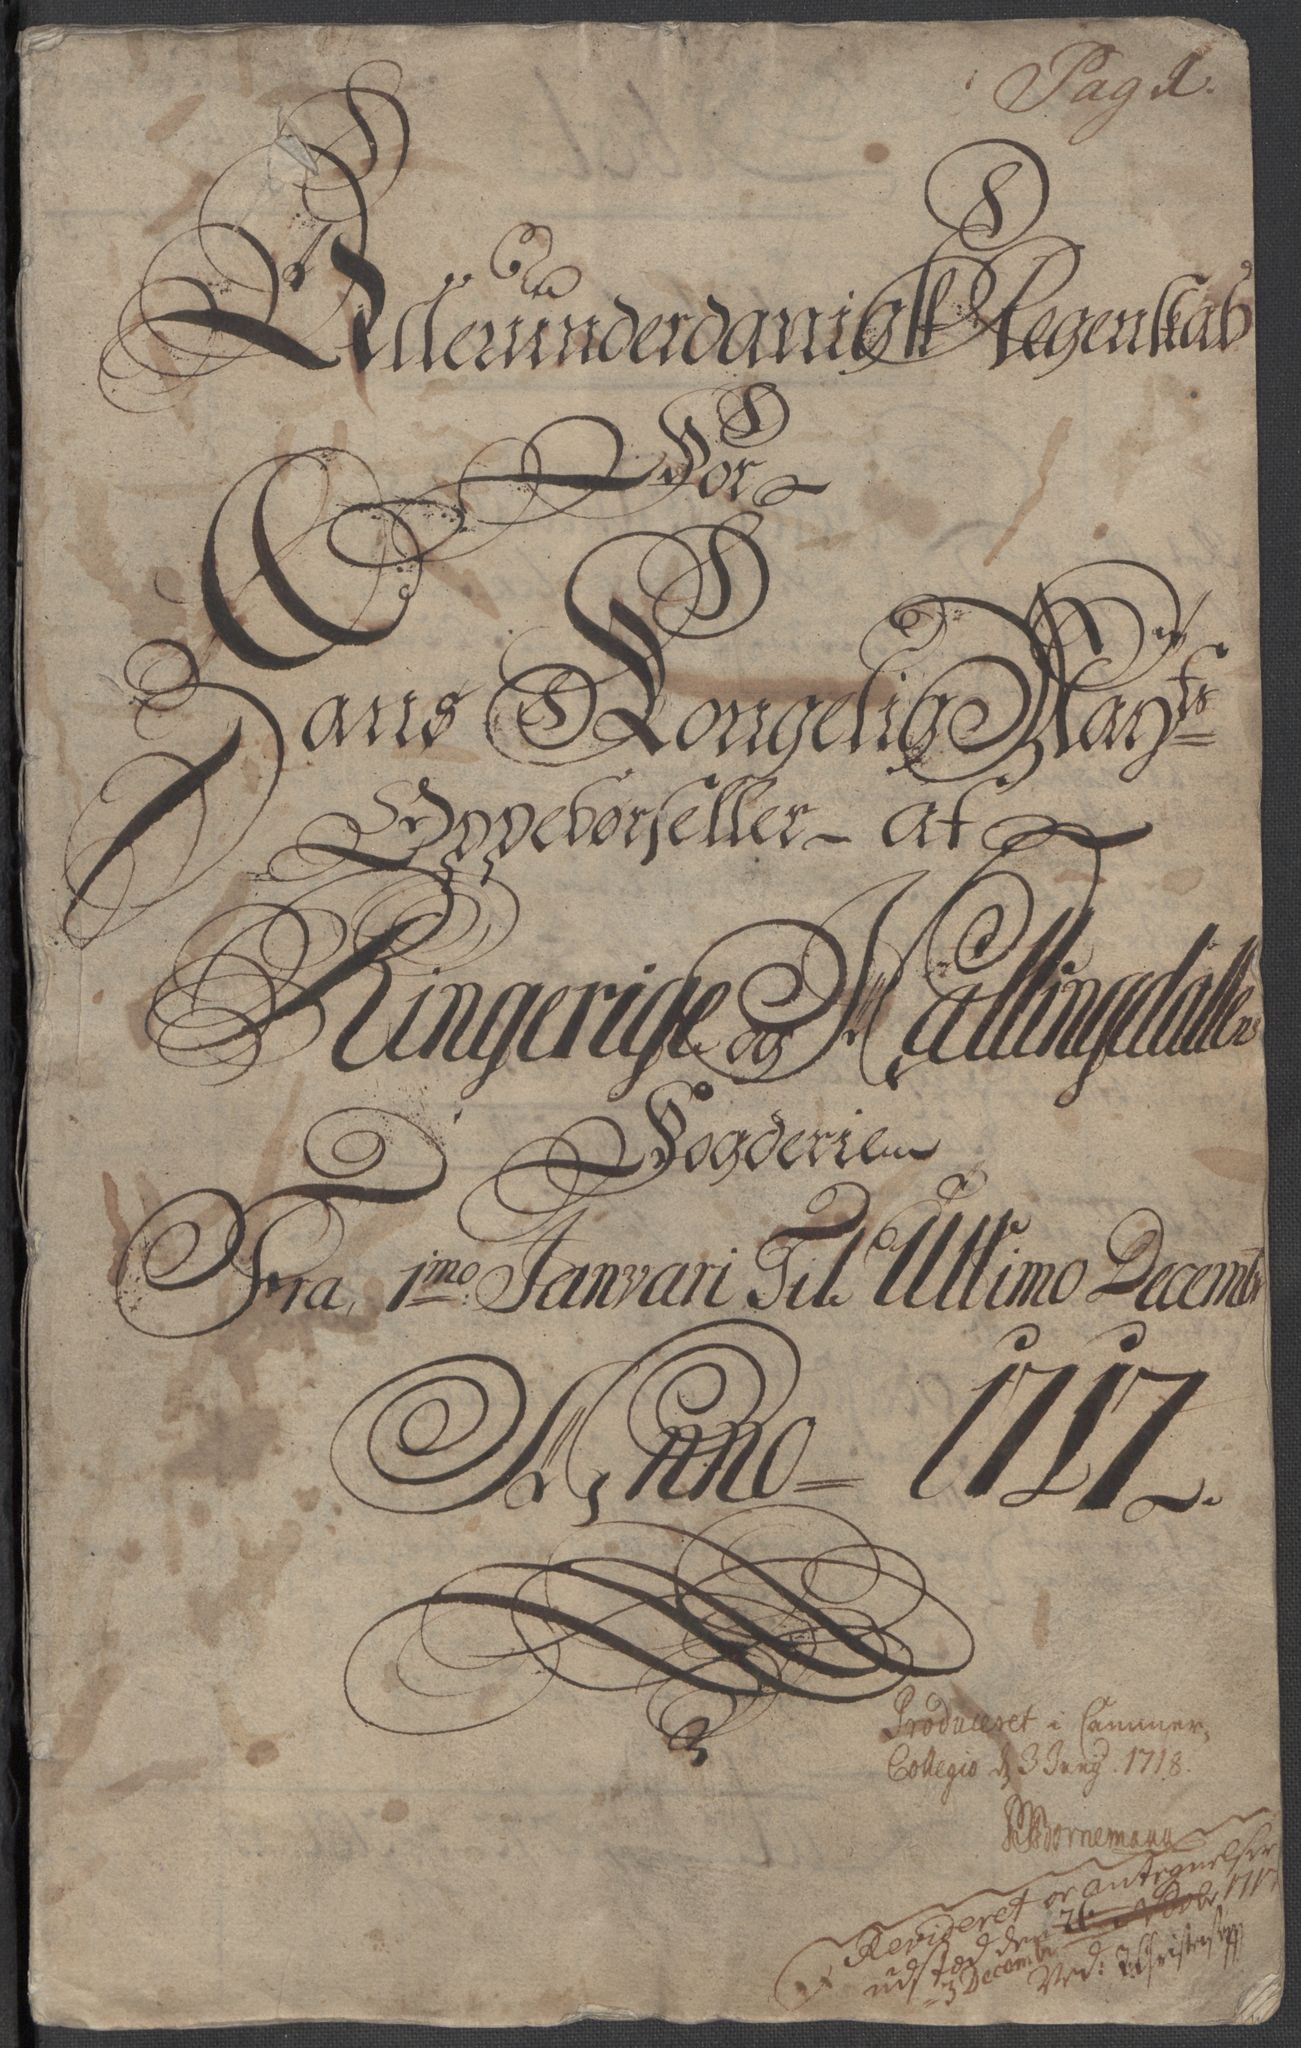 Pag 1.
Allerunderdanigst Regenskab
For
Hans Kongelig Mayts
Oppebørseller af
Ringerige og Hallingdallens
Fogderie
Fra 1mo Januari Til Ultimo Decembr
Anno 1717.
Produceret i Cammer
Collegio d 3 Juny 1718.
Bornemann
Revideret or antegnelser
udsted den 26 8br 1717
3 Decembr Ved: